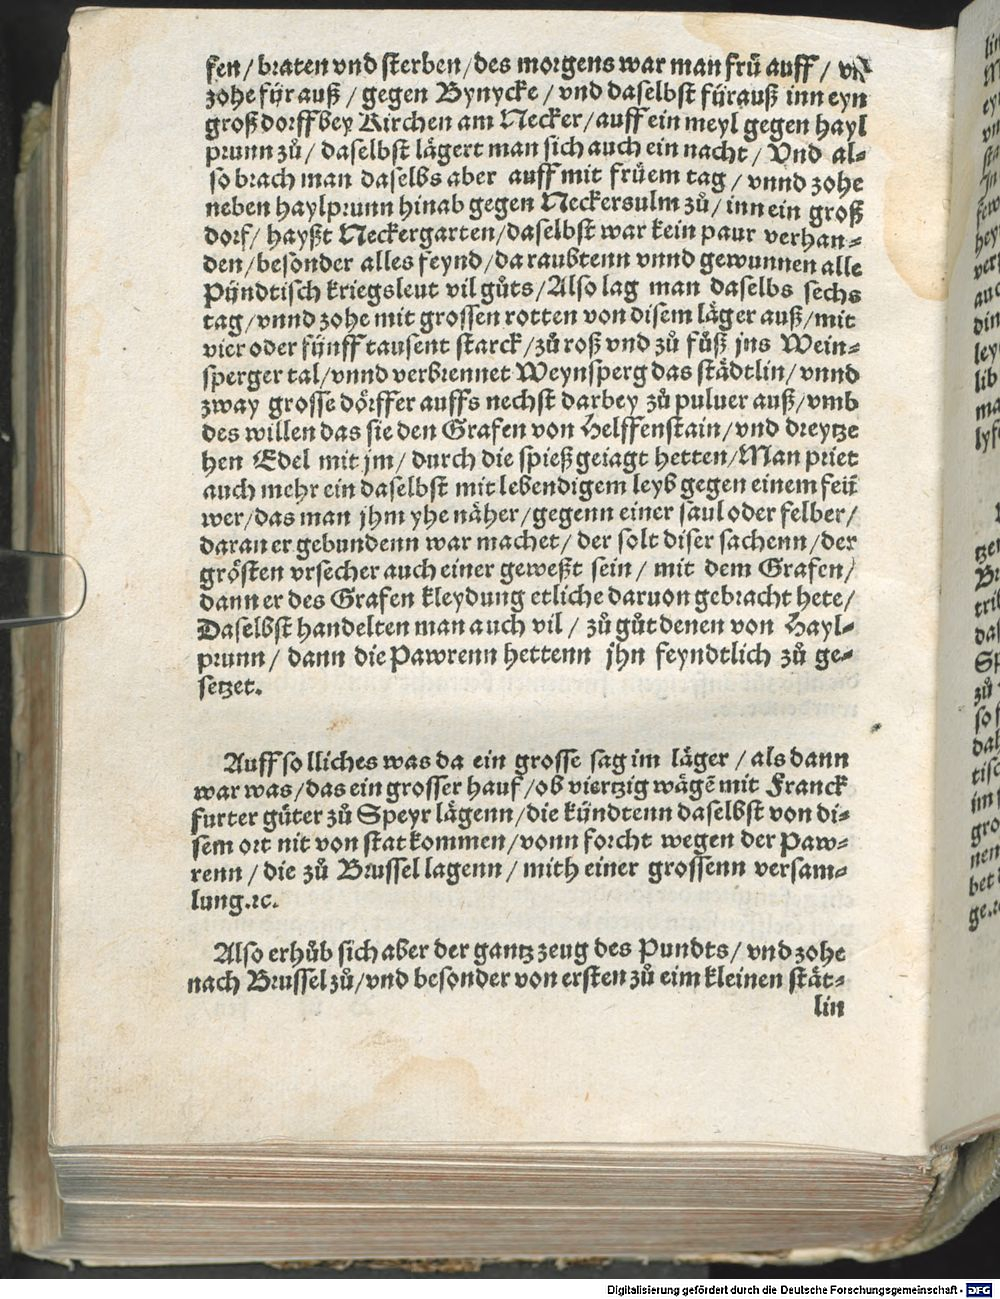 fen / braten vnd sterben / des morgens war man frü auff /
zohe für auß / gegen Bynycke / vnd daselbst fürauß inn eyn
groß dorff bey Kirchen am Necker / auff ein meyl gegen hayl
prunn zů / daselbst lägert man sich auch ein nacht / Vnd al-
so brach man daselbs aber auff mit früem tag / vnnd zohe
neben haylprunn hinab gegen Neckersulm zů / inn ein groß
dorf / hayßt Neckergarten / daselbst war kein paur verhan-
den / besonder alles feynd / da raubtenn vnnd gewunnen alle
Pündtisch kriegsleut vil gůts / Also lag man daselbs sechs
tag / vnnd zohe mit grossen rotten von disem läger auß / mit
vier oder fünff tausent starck / zů roß vnd zů fůß jns Wein-
sperger tal / vnnd verbrennet Weynsperg das städtlin / vnnd
zway grosse dörffer auffs nechst darbey zů puluer auß / vmb
des willen das sie den Grafen von Helffenstain / vnd dreytze
hen Edel mit jm / durch die spieß geiagt hetten / Man priet
auch mehr ein daselbst mit lebendigem leyb gegen einem feü
wer / das man jhm yhe näher / gegenn einer saul oder felber /
daran er gebundenn war machet / der solt diser sachenn / der
grösten vrsecher auch einer geweßt sein / mit dem Grafen /
dann er des Grafen kleydung etliche daruon gebracht hete /
Daselbst handelten man auch vil / zů gůt denen von Hayl-
prunn / dann die Pawrenn hettenn jhn feyndtlich zů ge-
setzet.
Auff solliches was da ein grosse sag im läger / als dann
war was / das ein grosser hauf / ob viertzig wägẽ mit Franck
furter güter zů Speyr lägenn / die kündtenn daselbst von di-
sem ort nit von stat kommen / vonn forcht wegen der Paw-
renn / die zů Brussel lagenn / mith einer grossenn versam-
lung. ꝛc.
Also erhůb sich aber der gantz zeug des Pundts / vnd zohe
nach Brussel zů / vnd besonder von ersten zů eim kleinen stät-
lin
Digitalisierung gefördert durch die Deutsche Forschungsgemeinschaft - DFG